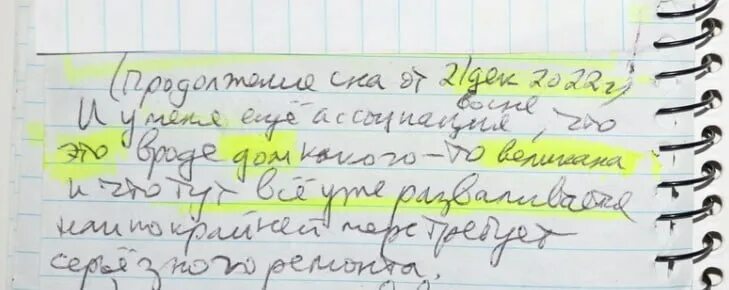 (Продолжение сна от 21 дек 2022г)
И у меня ещё ассоциация во сне, что
это вроде дом какого-то великана
и что тут всё уже разваливается
или по крайней мере требует
серьёзного ремонта.